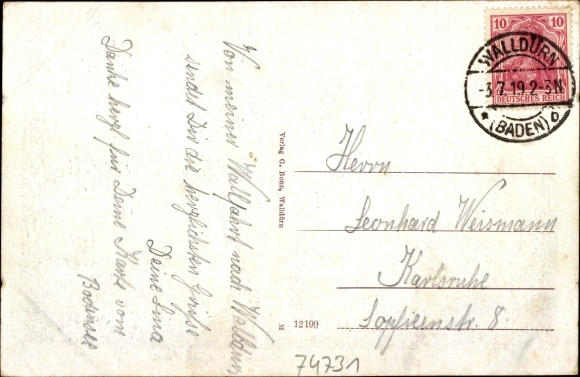 Von meiner Wallfahrt nach Walldürn
sendt Dir die herzlichsten Grüße
Deine Lina
Danke herzl für Deine Karte vom
Bodensee
Verlag G. Bonn, Walldürn
M 12199
10 10
DEUTSCHES REICH
WALLDÜRN
-3.7.19.2-3N
* (BADEN) b
Herrn
Leonhard Weismann
Karlsruhe
Sophienstr. 8.
74731